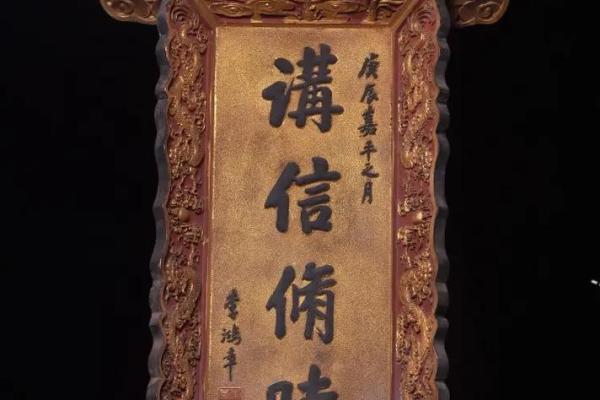 庚辰嘉平之月
講信脩
李鴻章